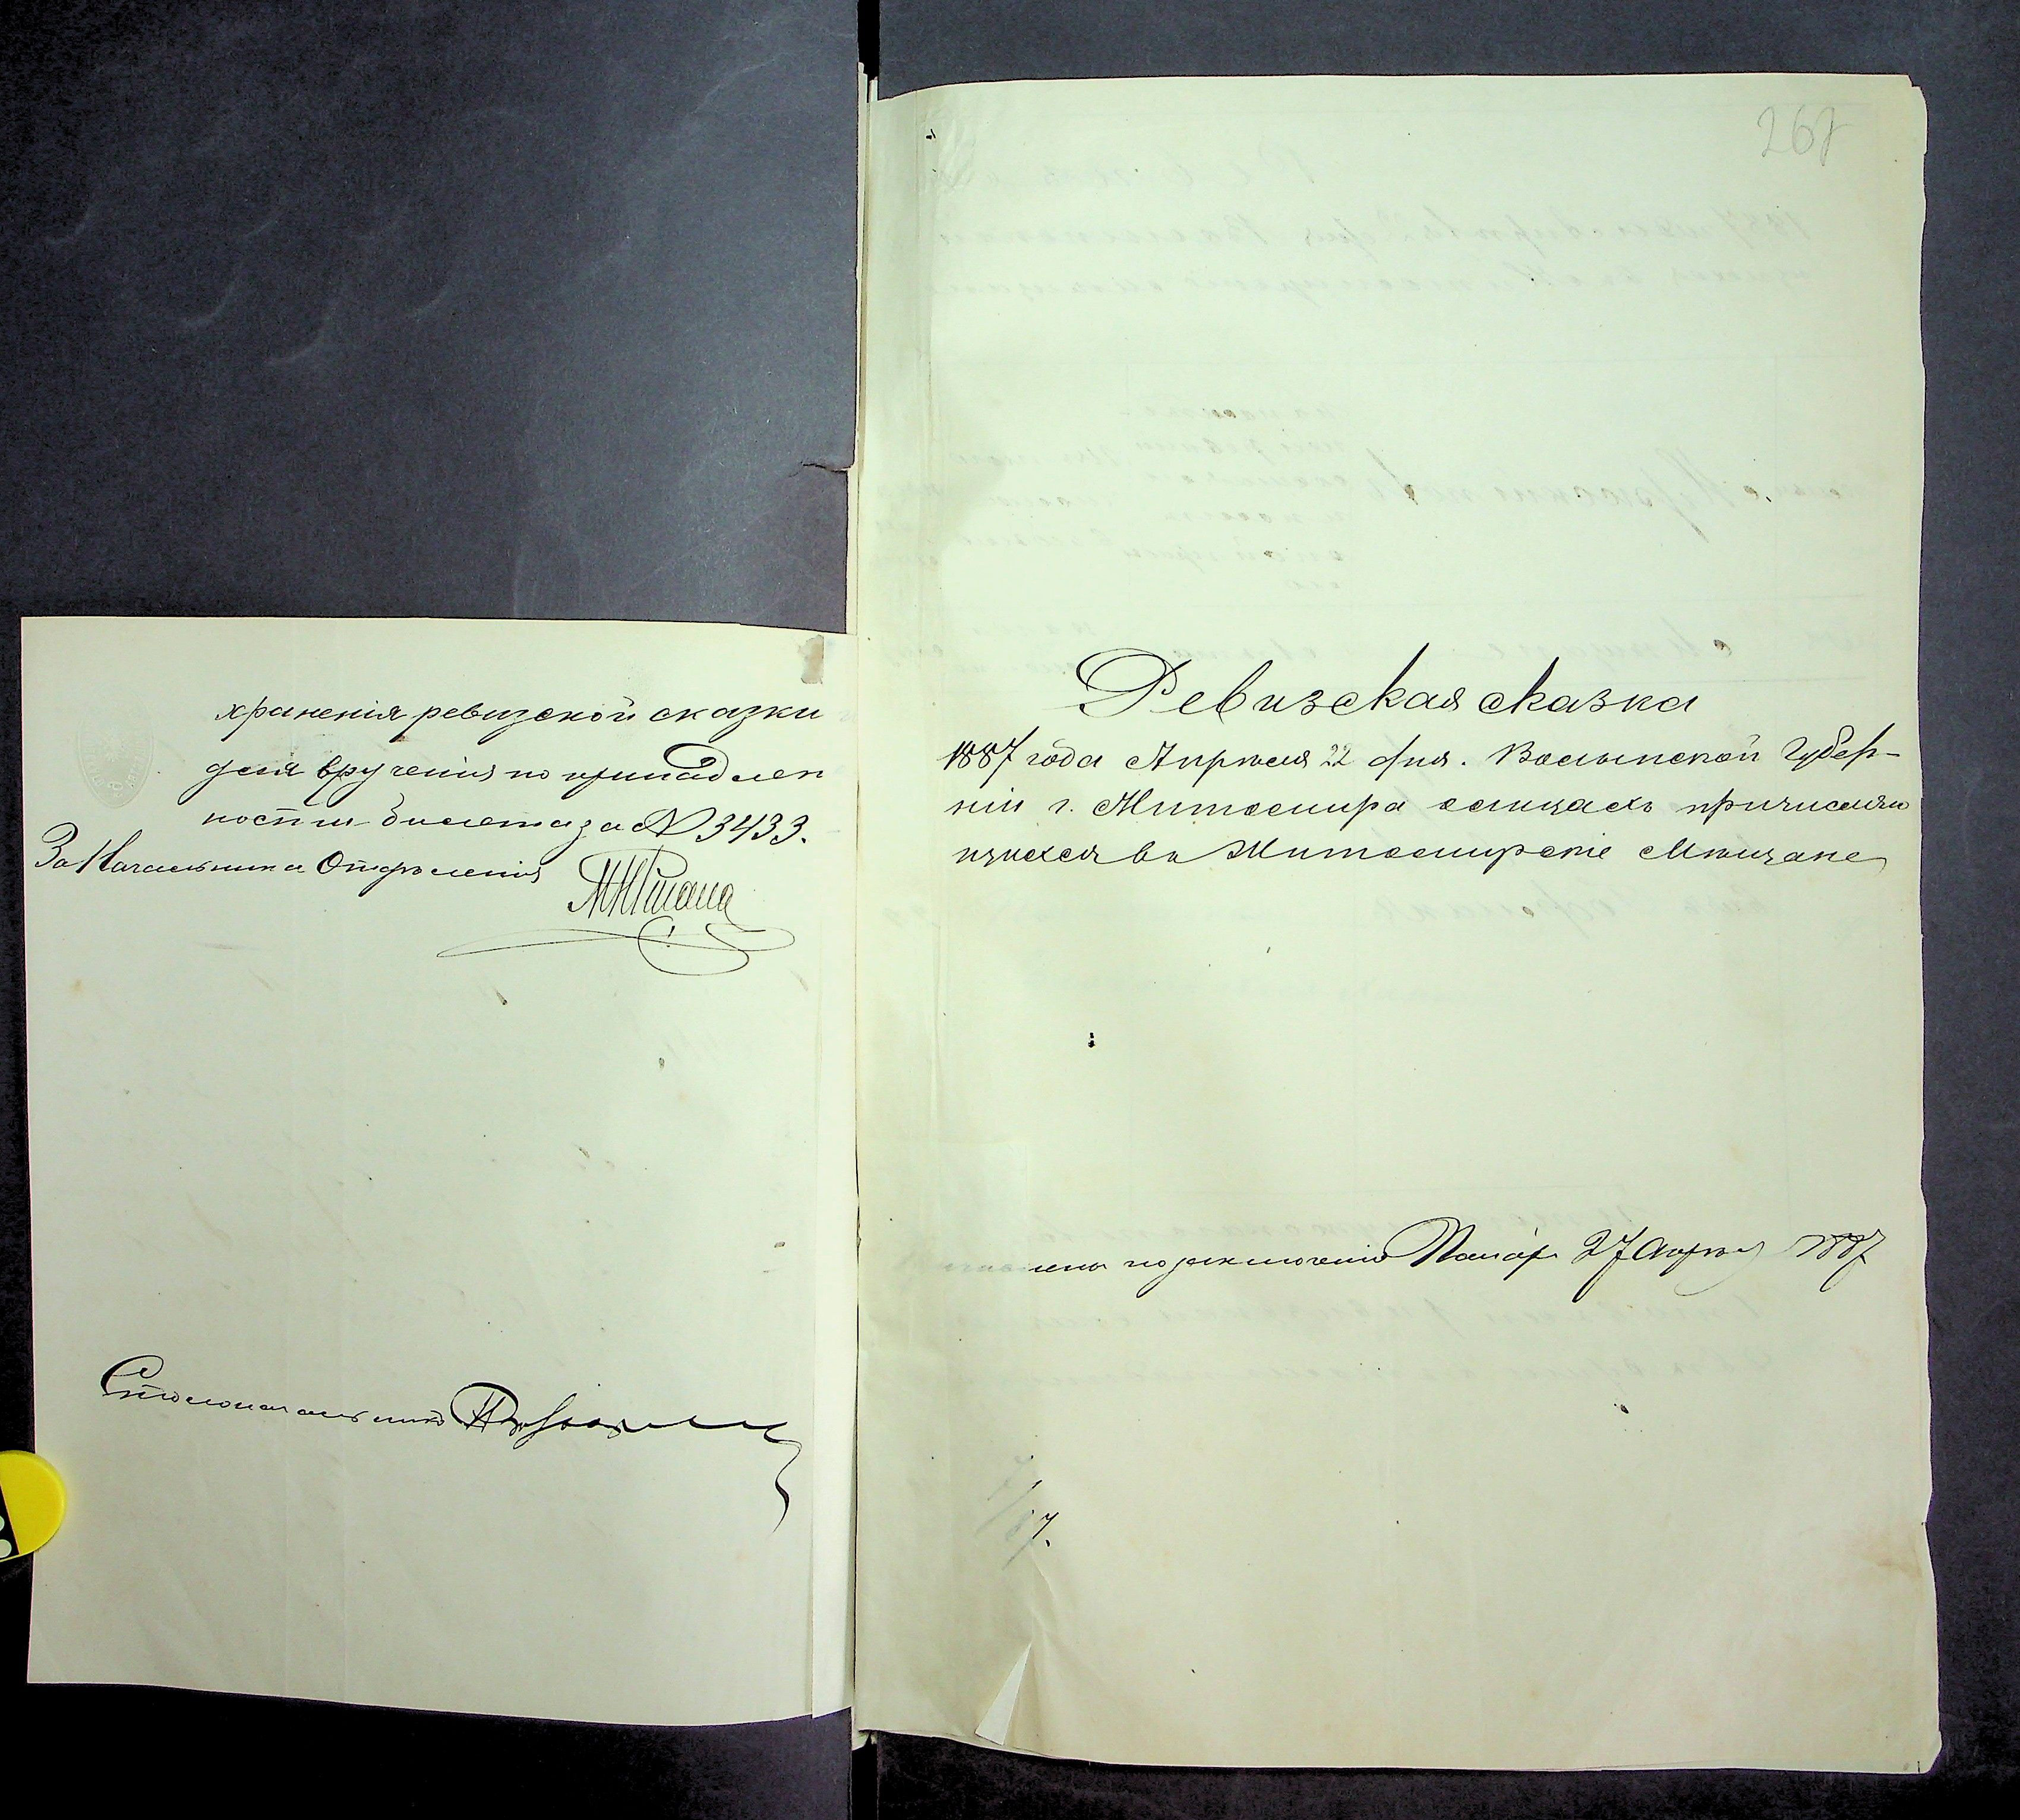 храненія ревизской сказки
для врученія по принадлеж
ности билета за № 3433.
За Начальника Отдѣленія
Столоначальникъ
267
Ревизская сказка
1887 года Апрѣля 22 дня. Волынской Губер-
ніи г. Житомира о лицахъ причисляю
щихся въ Житомирскіе Мѣщане
по заключенію Палаты 27 Апрѣля 1887